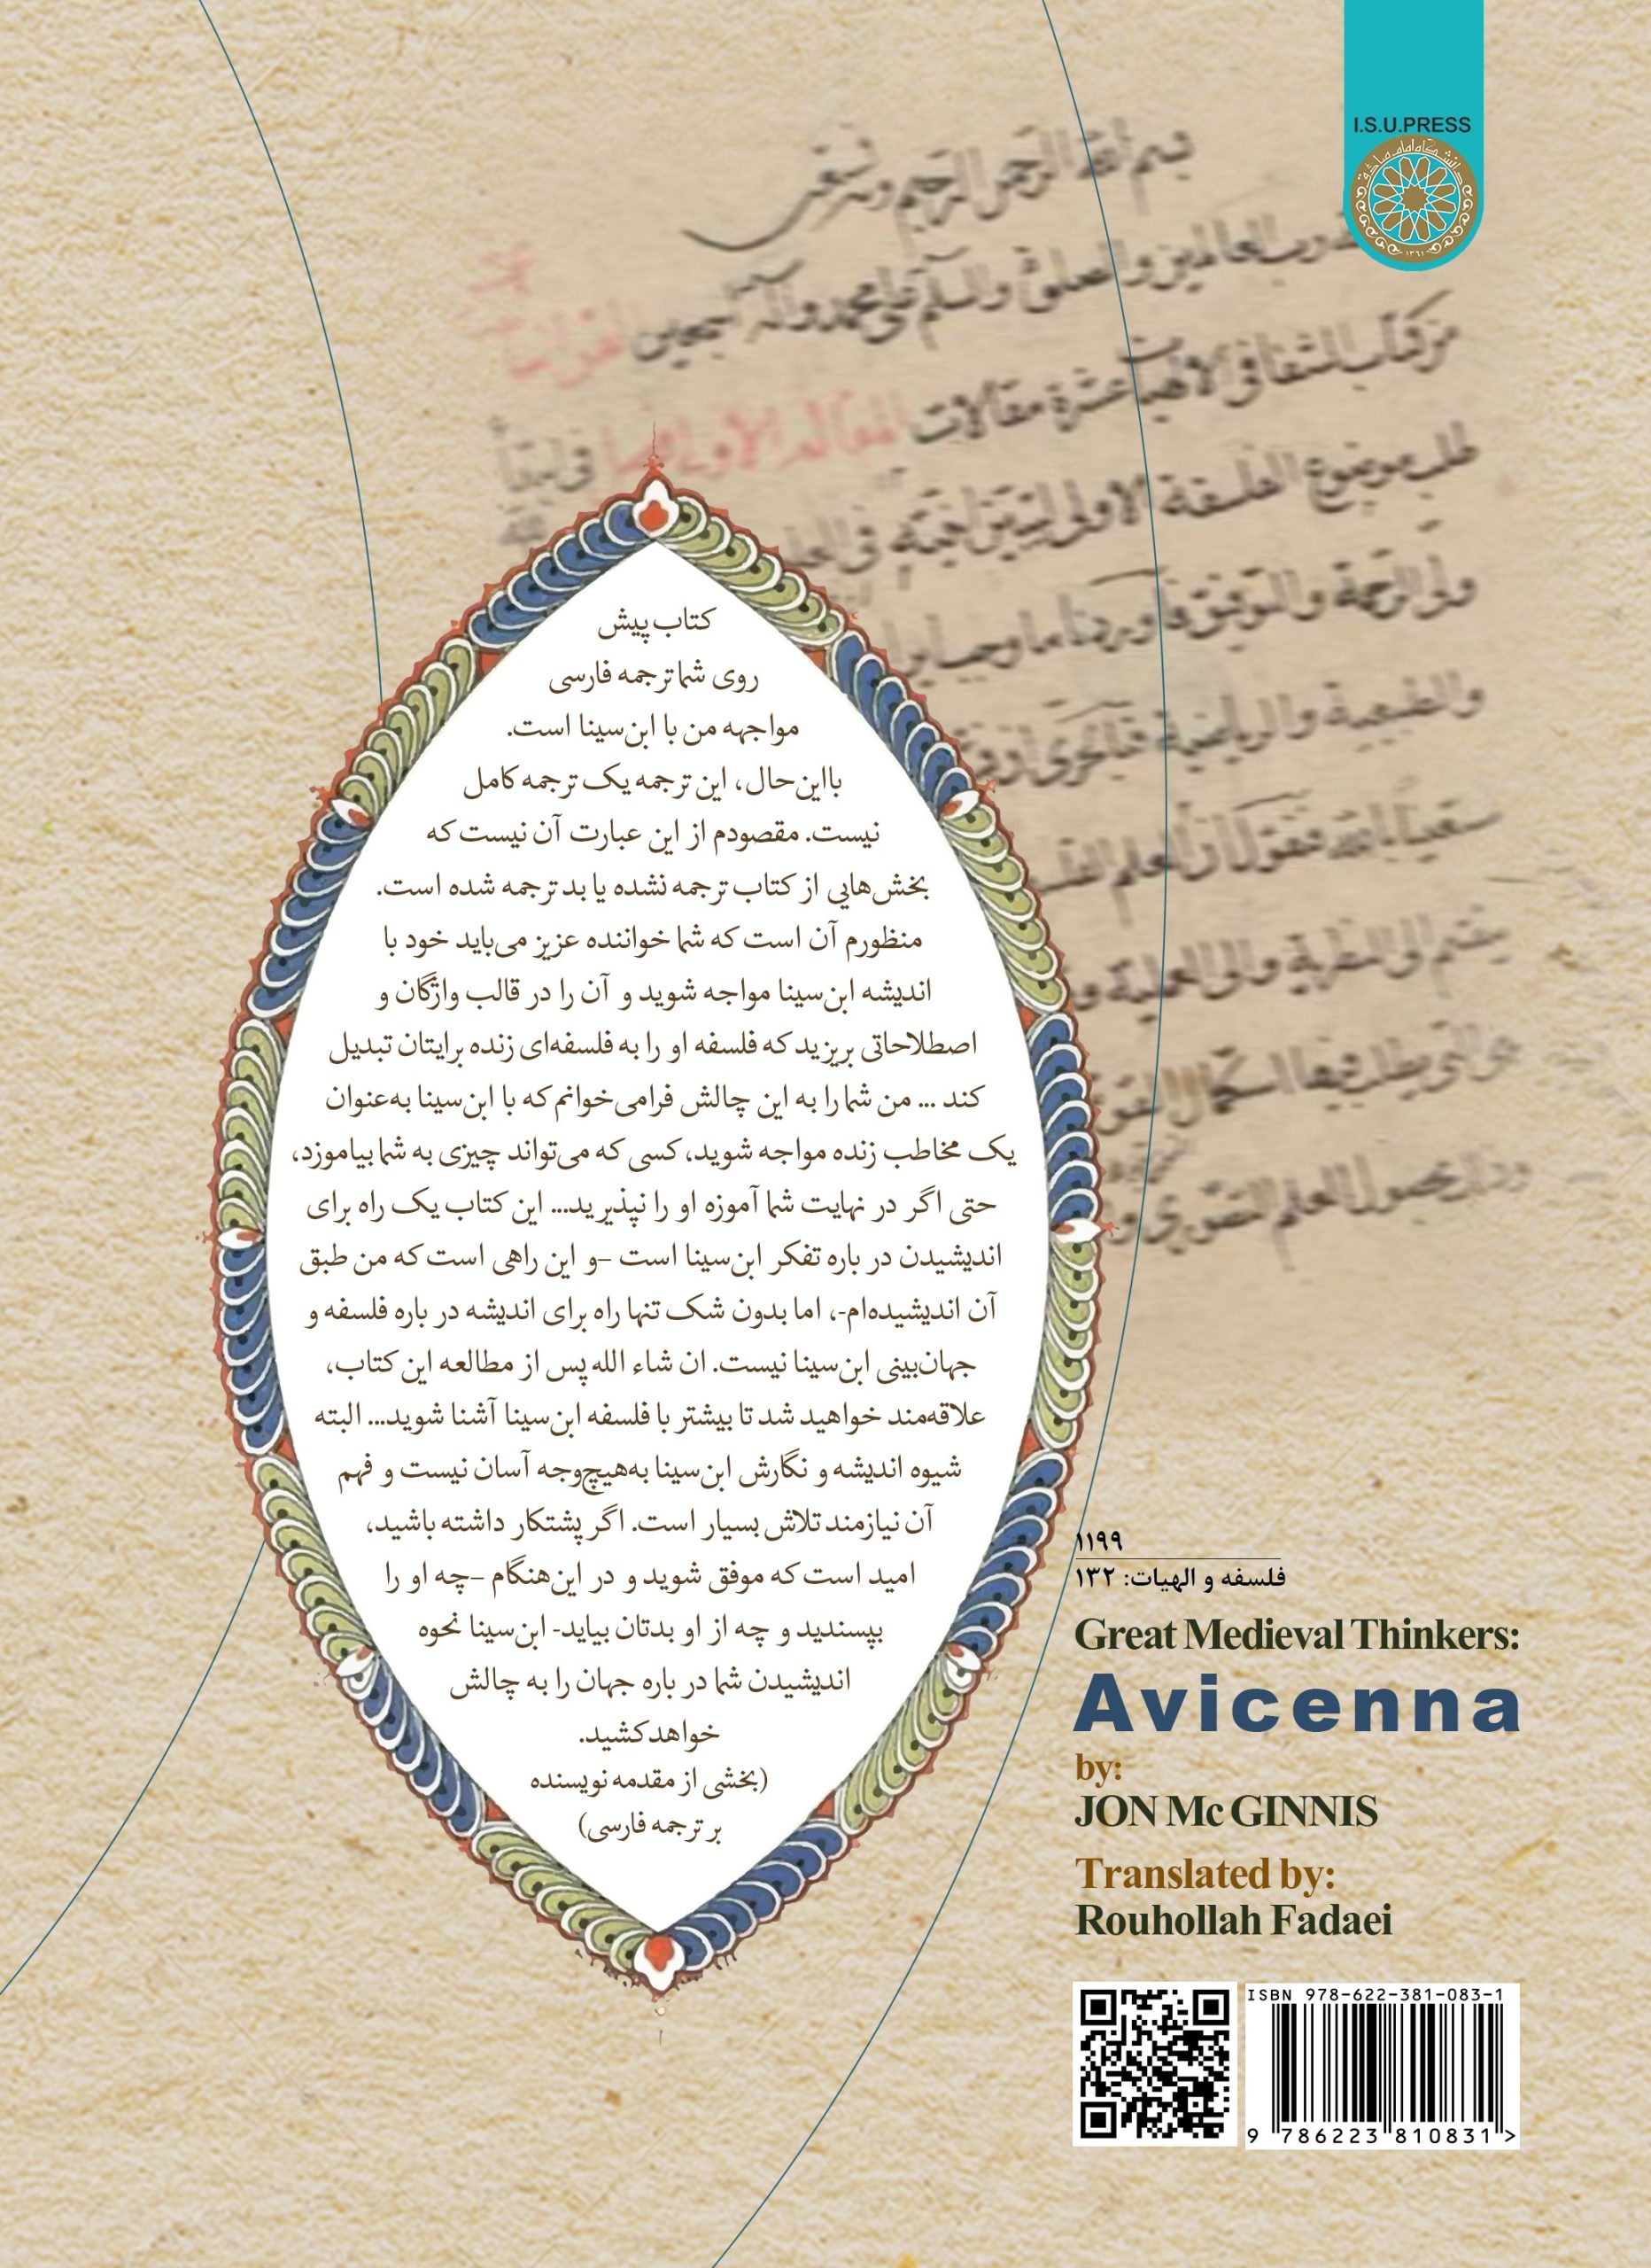 I.S.U.PRESS
کتاب پیش
روی شما ترجمه فارسی
مواجهه من با ابن‌سینا است.
بااین‌حال، این ترجمه یک ترجمه کامل
نیست. مقصودم از این عبارت آن نیست که
بخش‌هایی از کتاب ترجمه نشده یا بد ترجمه شده است.
منظورم آن است که شما خواننده عزیز می‌باید خود با
اندیشه ابن‌سینا مواجه شوید و آن را در قالب واژگان و
اصطلاحاتی بریزید که فلسفه او را به فلسفه‌ای زنده برایتان تبدیل
کند ... من شما را به این چالش فرامی‌خوانم که با ابن‌سینا به‌عنوان
یک مخاطب زنده مواجه شوید، کسی که می‌تواند چیزی به شما بیاموزد،
حتی اگر در نهایت شما آموزه او را نپذیرید... این کتاب یک راه برای
اندیشیدن در باره تفکر ابن‌سینا است -و این راهی است که من طبق
آن اندیشیده‌ام-، اما بدون شک تنها راه برای اندیشه در باره فلسفه و
جهان‌بینی ابن‌سینا نیست. ان شاء الله پس از مطالعه این کتاب،
علاقه‌مند خواهید شد تا بیشتر با فلسفه ابن‌سینا آشنا شوید... البته
شیوه اندیشه و نگارش ابن‌سینا به‌هیچ‌وجه آسان نیست و فهم
آن نیازمند تلاش بسیار است. اگر پشتکار داشته باشید،
امید است که موفق شوید و در این‌هنگام -چه او را
بپسندید و چه از او بدتان بیاید- ابن‌سینا نحوه
اندیشیدن شما در باره جهان را به چالش
خواهد کشید.
(بخشی از مقدمه نویسنده
بر ترجمه فارسی)
۱۱۹۹
فلسفه و الهیات: ۱۳۲
Great Medieval Thinkers:
Avicenna
by:
JON Mc GINNIS
Translated by:
Rouhollah Fadaei
ISBN 978-622-381-083-1
9 786223 810831 >